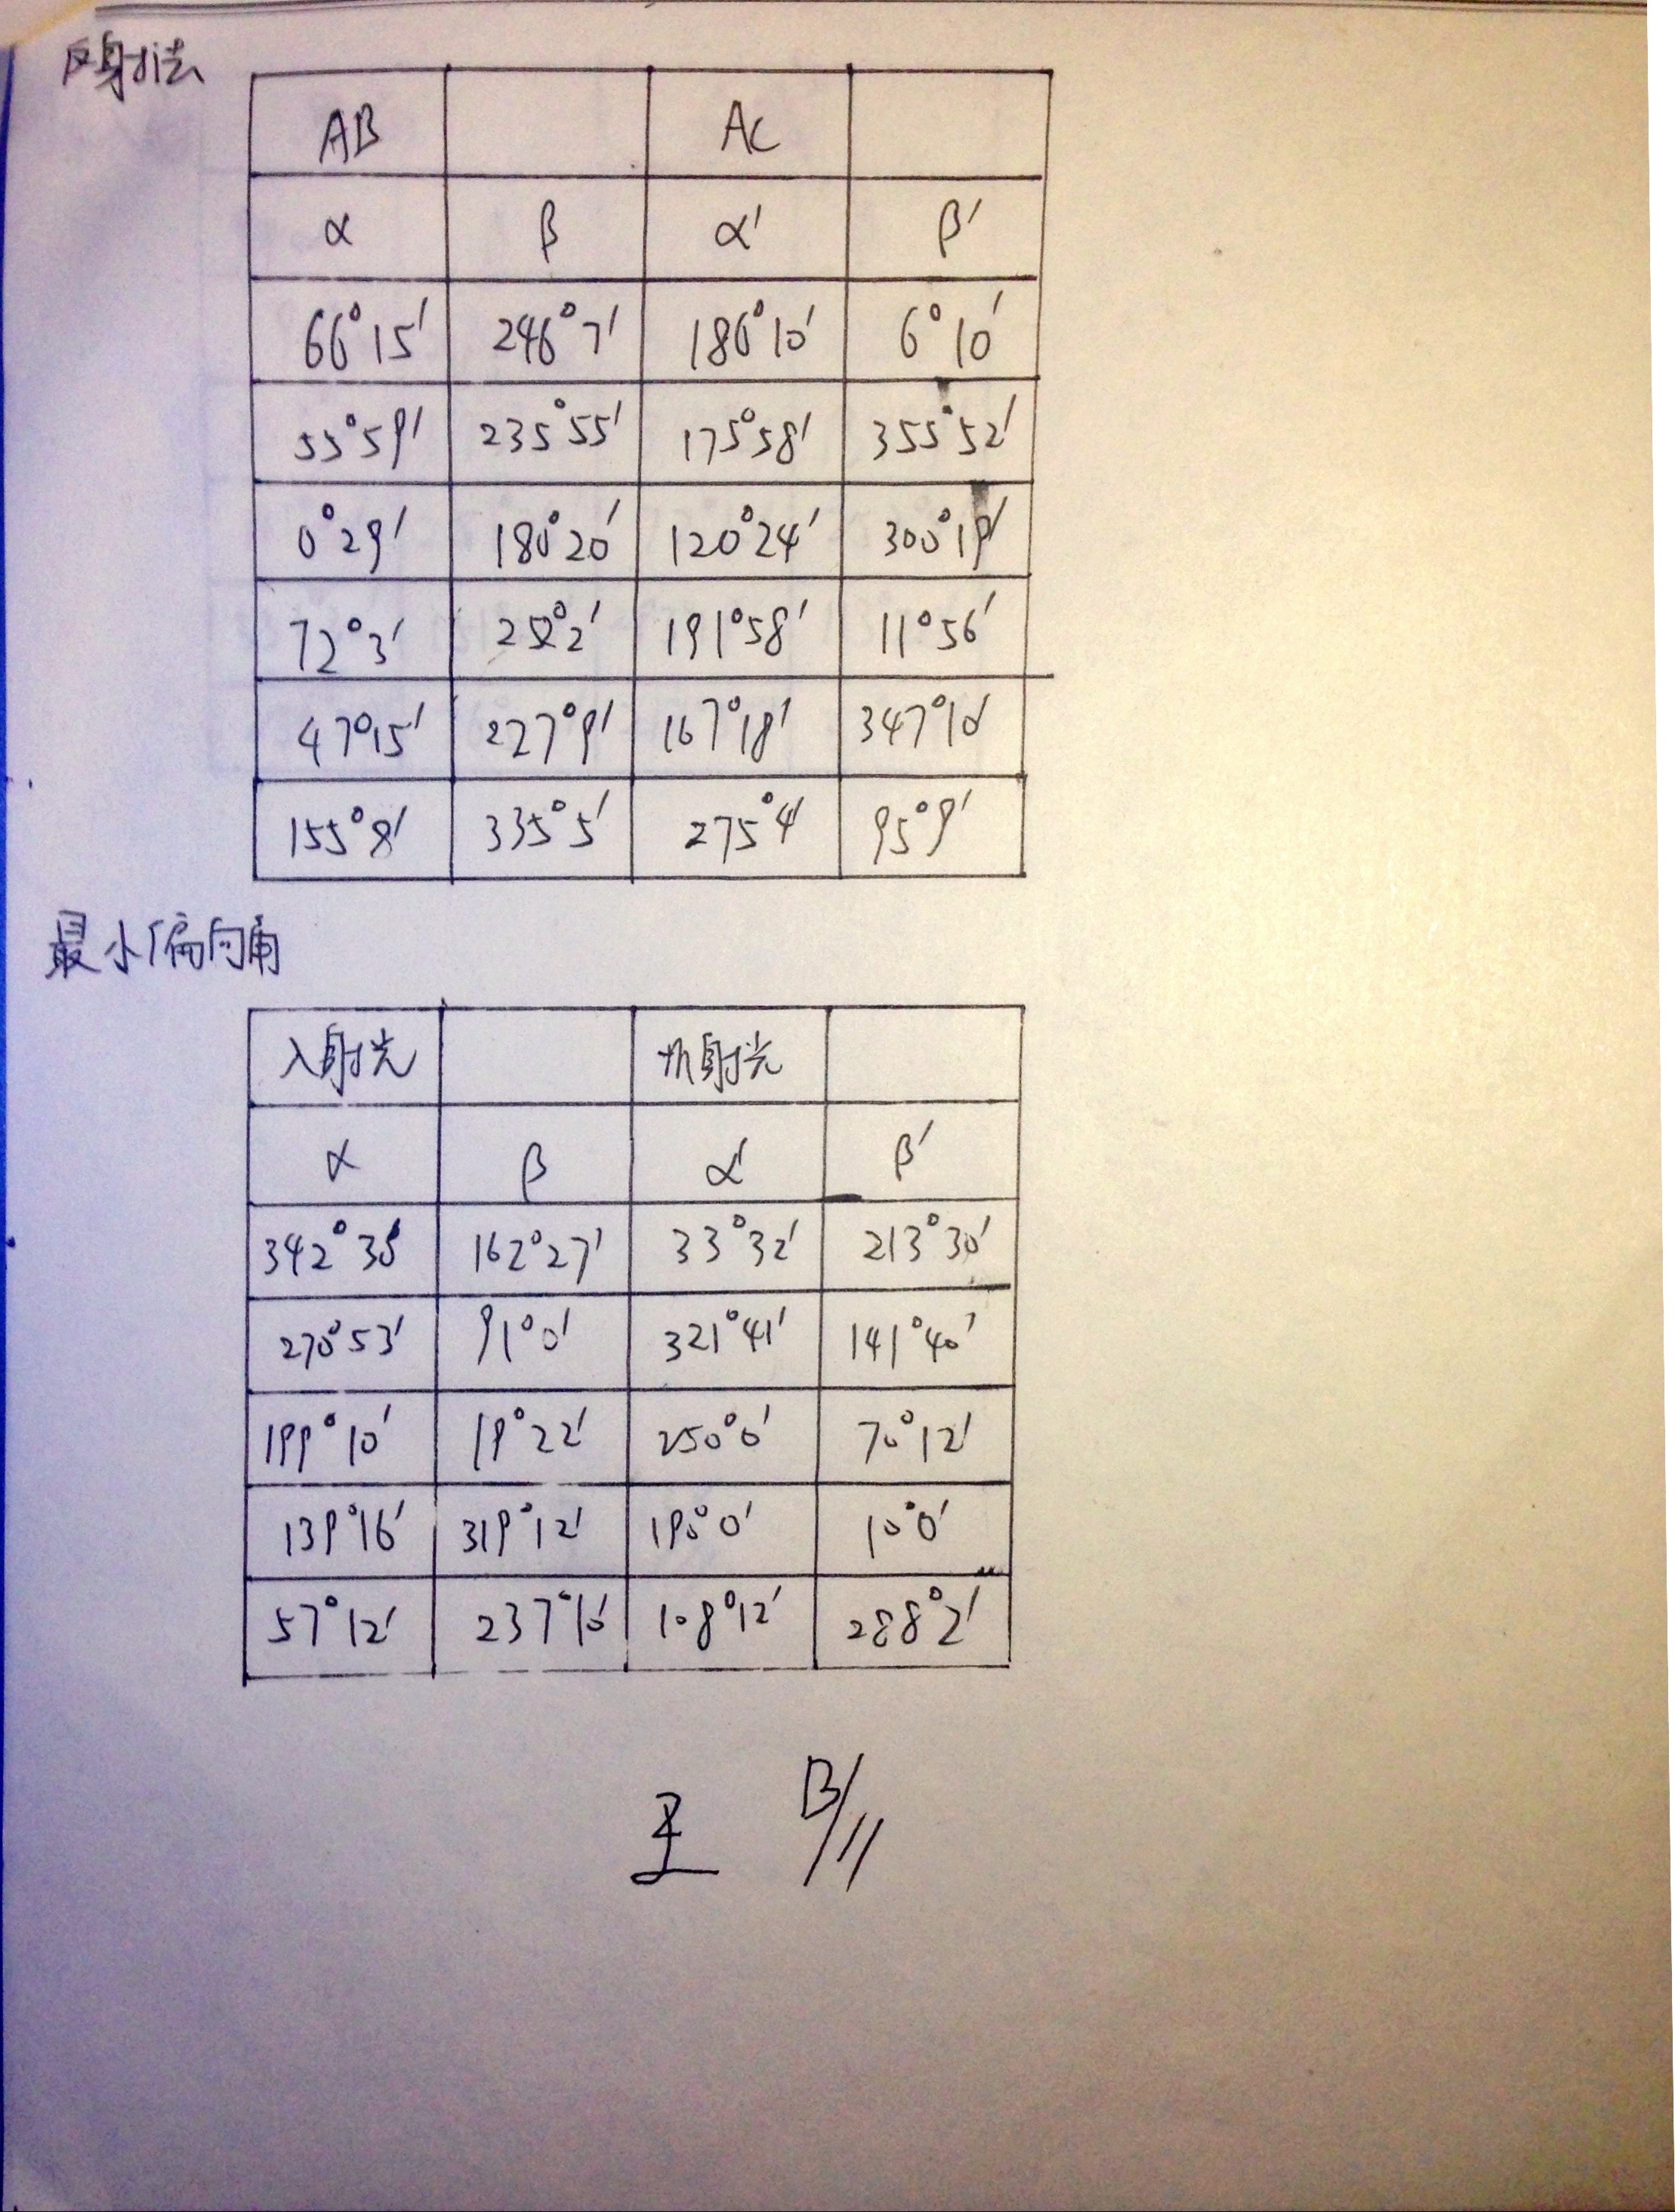 反射法
AB AC
α β α′ β′
66°15′ 246°7′ 186°10′ 6°10′
55°59′ 235°55′ 175°58′ 355°52′
0°29′ 180°20′ 120°24′ 300°19′
72°3′ 252°2′ 191°58′ 11°56′
47°15′ 227°9′ 167°18′ 347°10′
155°8′ 335°5′ 275°4′ 95°9′
最小偏向角
入射光 折射光
α β α′ β′
342°35′ 162°27′ 33°32′ 213°30′
270°53′ 91°0′ 321°41′ 141°40′
199°10′ 19°22′ 250°0′ 70°12′
139°16′ 319°12′ 190°0′ 10°0′
57°12′ 237°10′ 108°12′ 288°2′